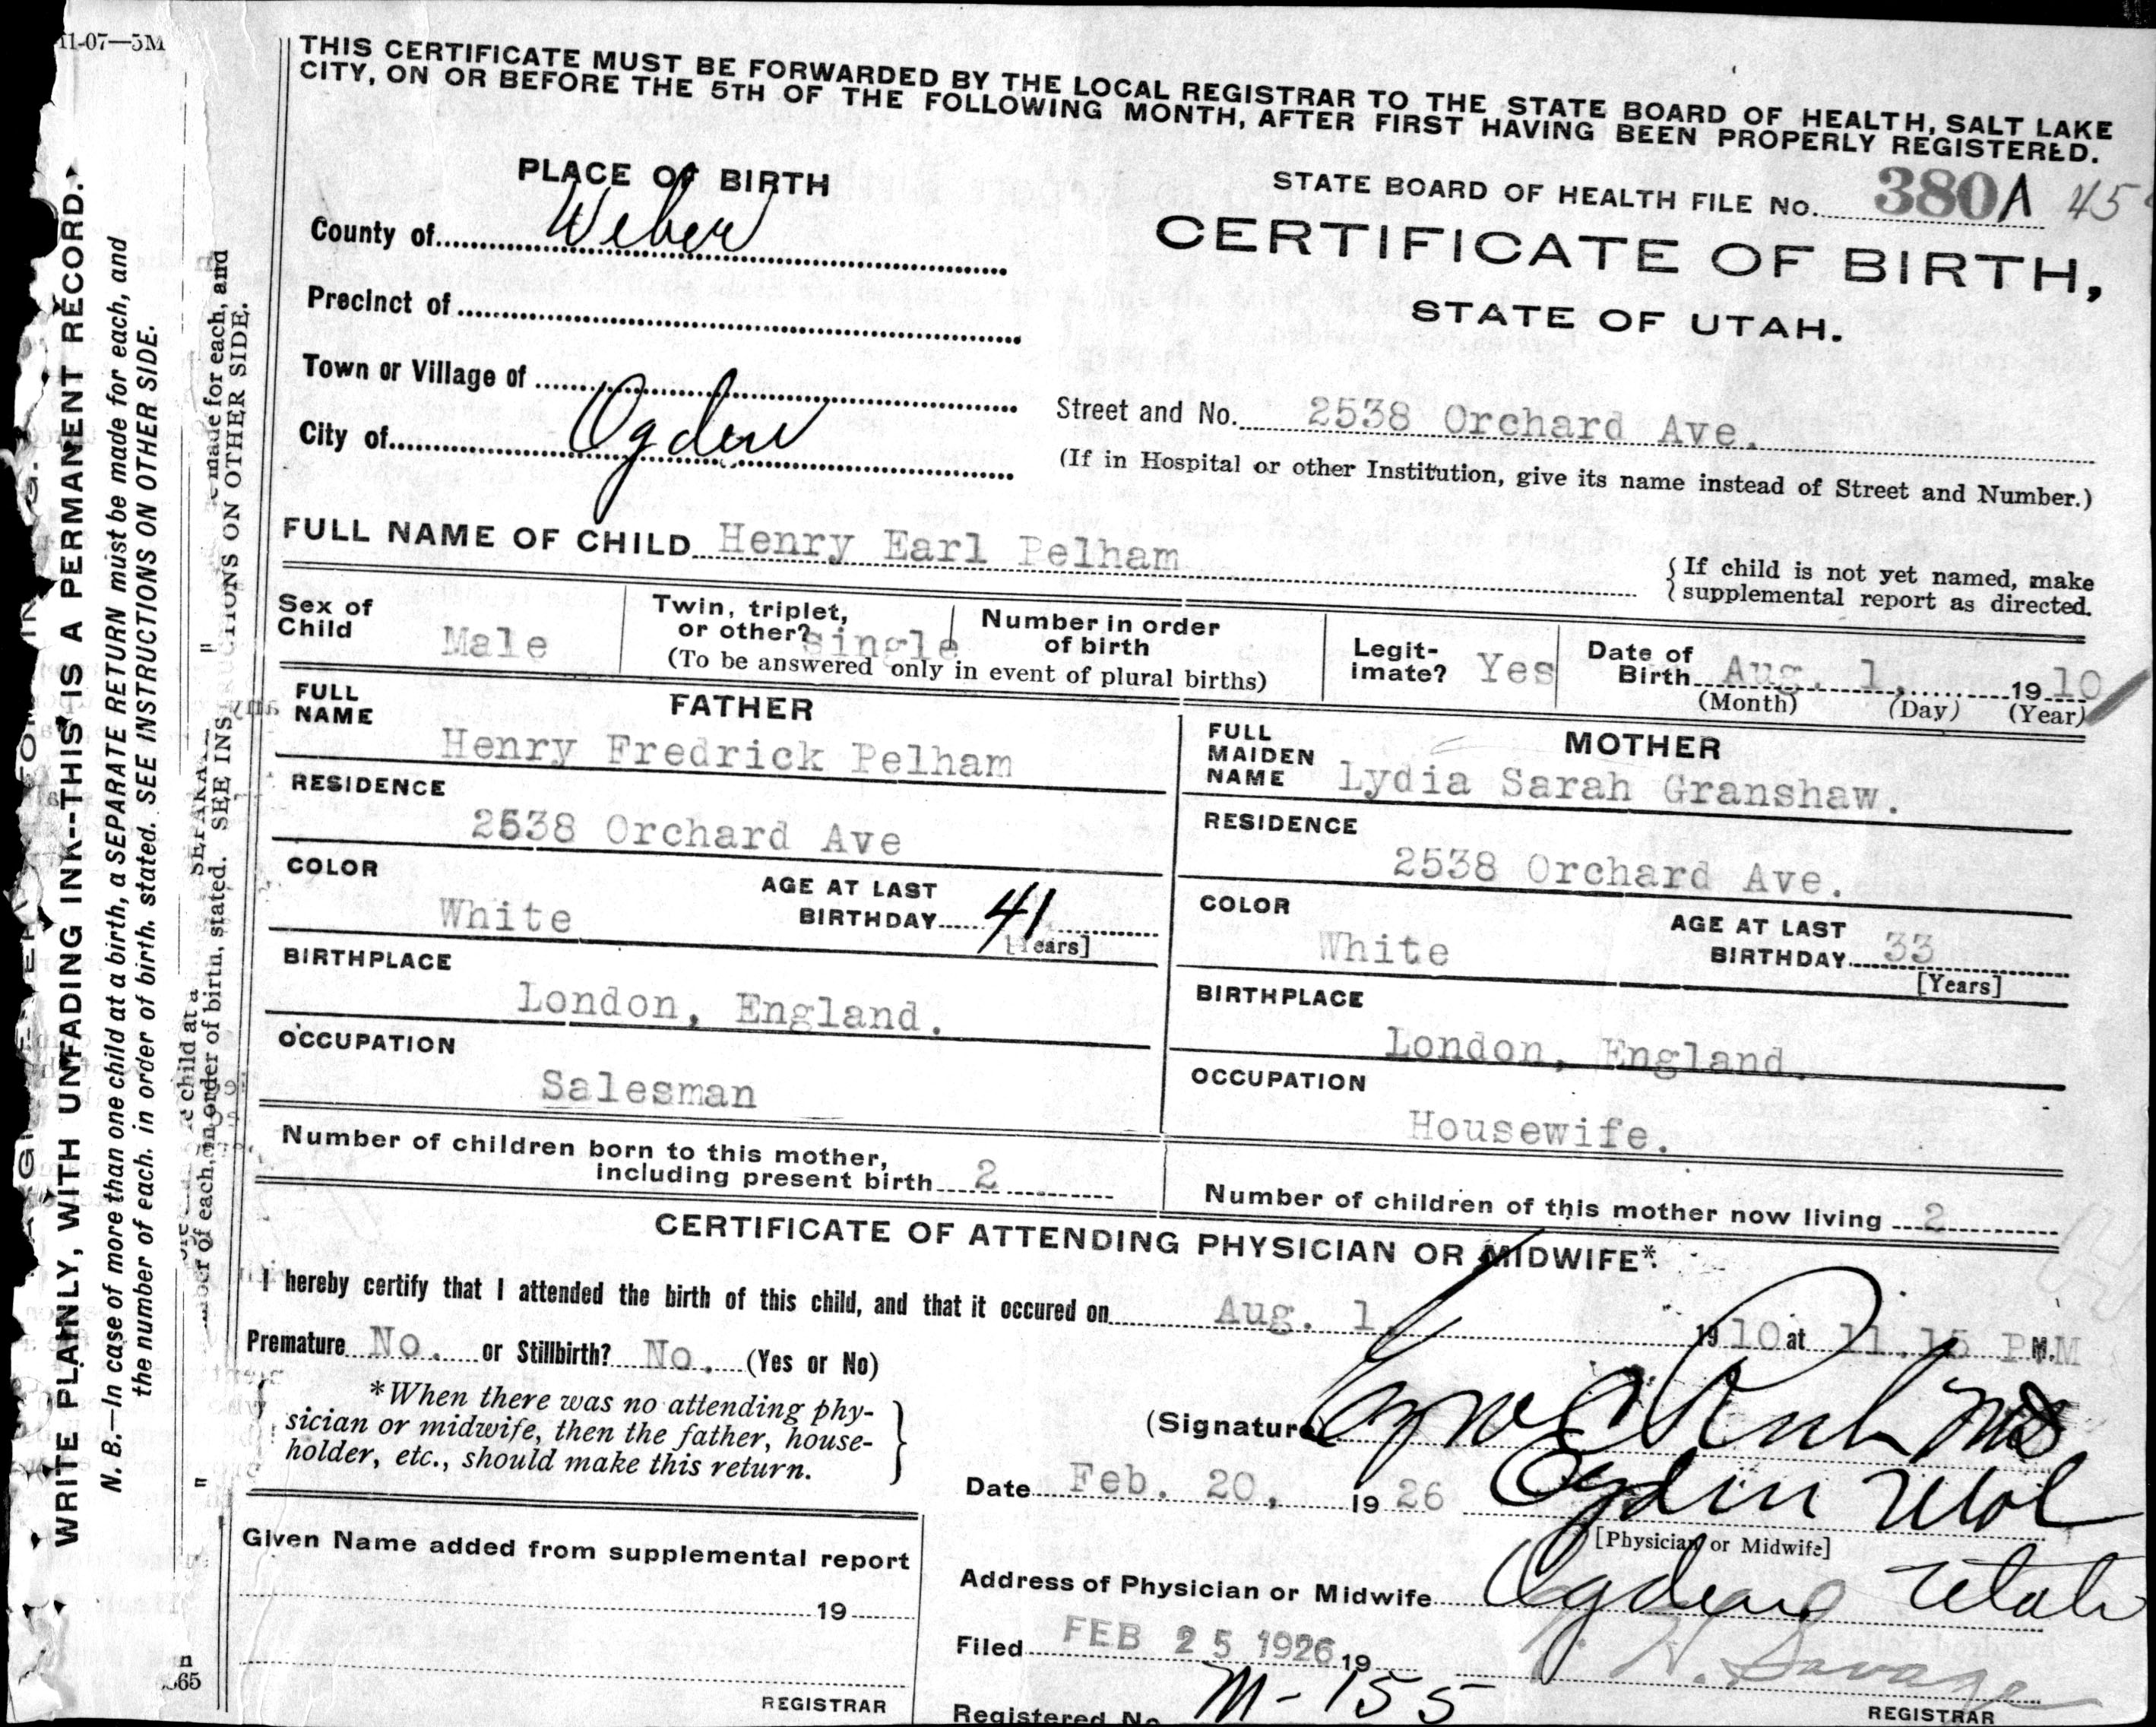 11-07—5M
THIS CERTIFICATE MUST BE FORWARDED BY THE LOCAL REGISTRAR TO THE STATE BOARD OF HEALTH, SALT LAKE
CITY, ON OR BEFORE THE 5TH OF THE FOLLOWING MONTH, AFTER FIRST HAVING BEEN PROPERLY REGISTERED.
PLACE OF BIRTH
STATE BOARD OF HEALTH FILE No. 380A 45
County of Weber
CERTIFICATE OF BIRTH,
STATE OF UTAH.
Precinct of
Town or Village of
City of Ogden
Street and No. 2538 Orchard Ave.
(If in Hospital or other Institution, give its name instead of Street and Number.)
FULL NAME OF CHILD Henry Earl Pelham
{If child is not yet named, make
supplemental report as directed.
Sex of
Child Male
Twin, triplet,
or other? single
(To be answered only in event of plural births)
Number in order
of birth
Legit-
imate? Yes
Date of
Birth Aug. 1, 1910
(Month) (Day) (Year)
FATHER
FULL
NAME
Henry Fredrick Pelham
MOTHER
FULL
MAIDEN
NAME Lydia Sarah Granshaw.
RESIDENCE
2538 Orchard Ave
RESIDENCE
2538 Orchard Ave.
COLOR
White
AGE AT LAST
BIRTHDAY 41
[Years]
COLOR
White
AGE AT LAST
BIRTHDAY 33
[Years]
BIRTHPLACE
London, England.
BIRTHPLACE
London, England.
OCCUPATION
Salesman
OCCUPATION
Housewife.
Number of children born to this mother,
including present birth 2
Number of children of this mother now living 2
CERTIFICATE OF ATTENDING PHYSICIAN OR MIDWIFE*.
I hereby certify that I attended the birth of this child, and that it occured on Aug. 1, 1910 at 11.15 P.M. M
Premature No. or Stillbirth? No. (Yes or No)
*When there was no attending phy-
sician or midwife, then the father, house-
holder, etc., should make this return.
(Signature)
Date Feb. 20, 1926
[Physician or Midwife]
Given Name added from supplemental report
19
REGISTRAR
Address of Physician or Midwife Ogden Utah
Filed FEB 25 1926 19
H. Savage
REGISTRAR
Registered No. M-155
WRITE PLAINLY, WITH UNFADING INK--THIS IS A PERMANENT RECORD.
N. B.—In case of more than one child at a birth, a SEPARATE RETURN must be made for each, and
the number of each. in order of birth. stated. SEE INSTRUCTIONS ON OTHER SIDE.
made for each, and
of each, on order of birth, stated. SEE INSTRUCTIONS ON OTHER SIDE.